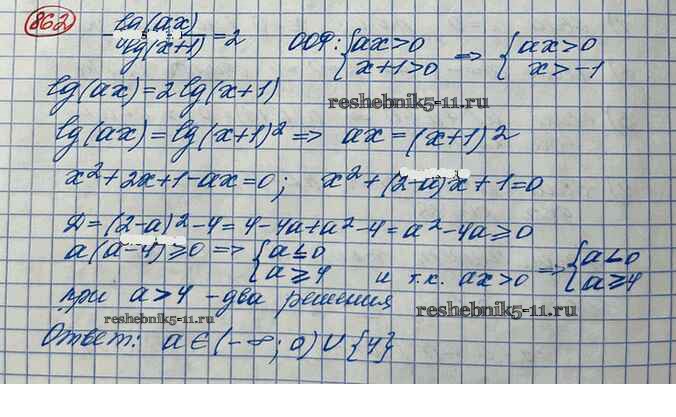 862
lg(ax)/lg(x+1) = 2 ООФ: {ax>0 x+1>0 => {ax>0 x>-1
lg(ax)=2lg(x+1)
reshebnik5-11.ru
lg(ax)=lg(x+1)² => ax=(x+1)²
x²+2x+1-ax=0; x²+(2-a)x+1=0
Д=(2-a)²-4=4-4a+a²-4=a²-4a≥0
a(a-4)≥0 => {a≤0 a≥4 и т.к. ax>0 => {a<0 a≥4
при a>4 - два решения
reshebnik5-11.ru
reshebnik5-11.ru
Ответ: a∈(-∞;0)∪{4}